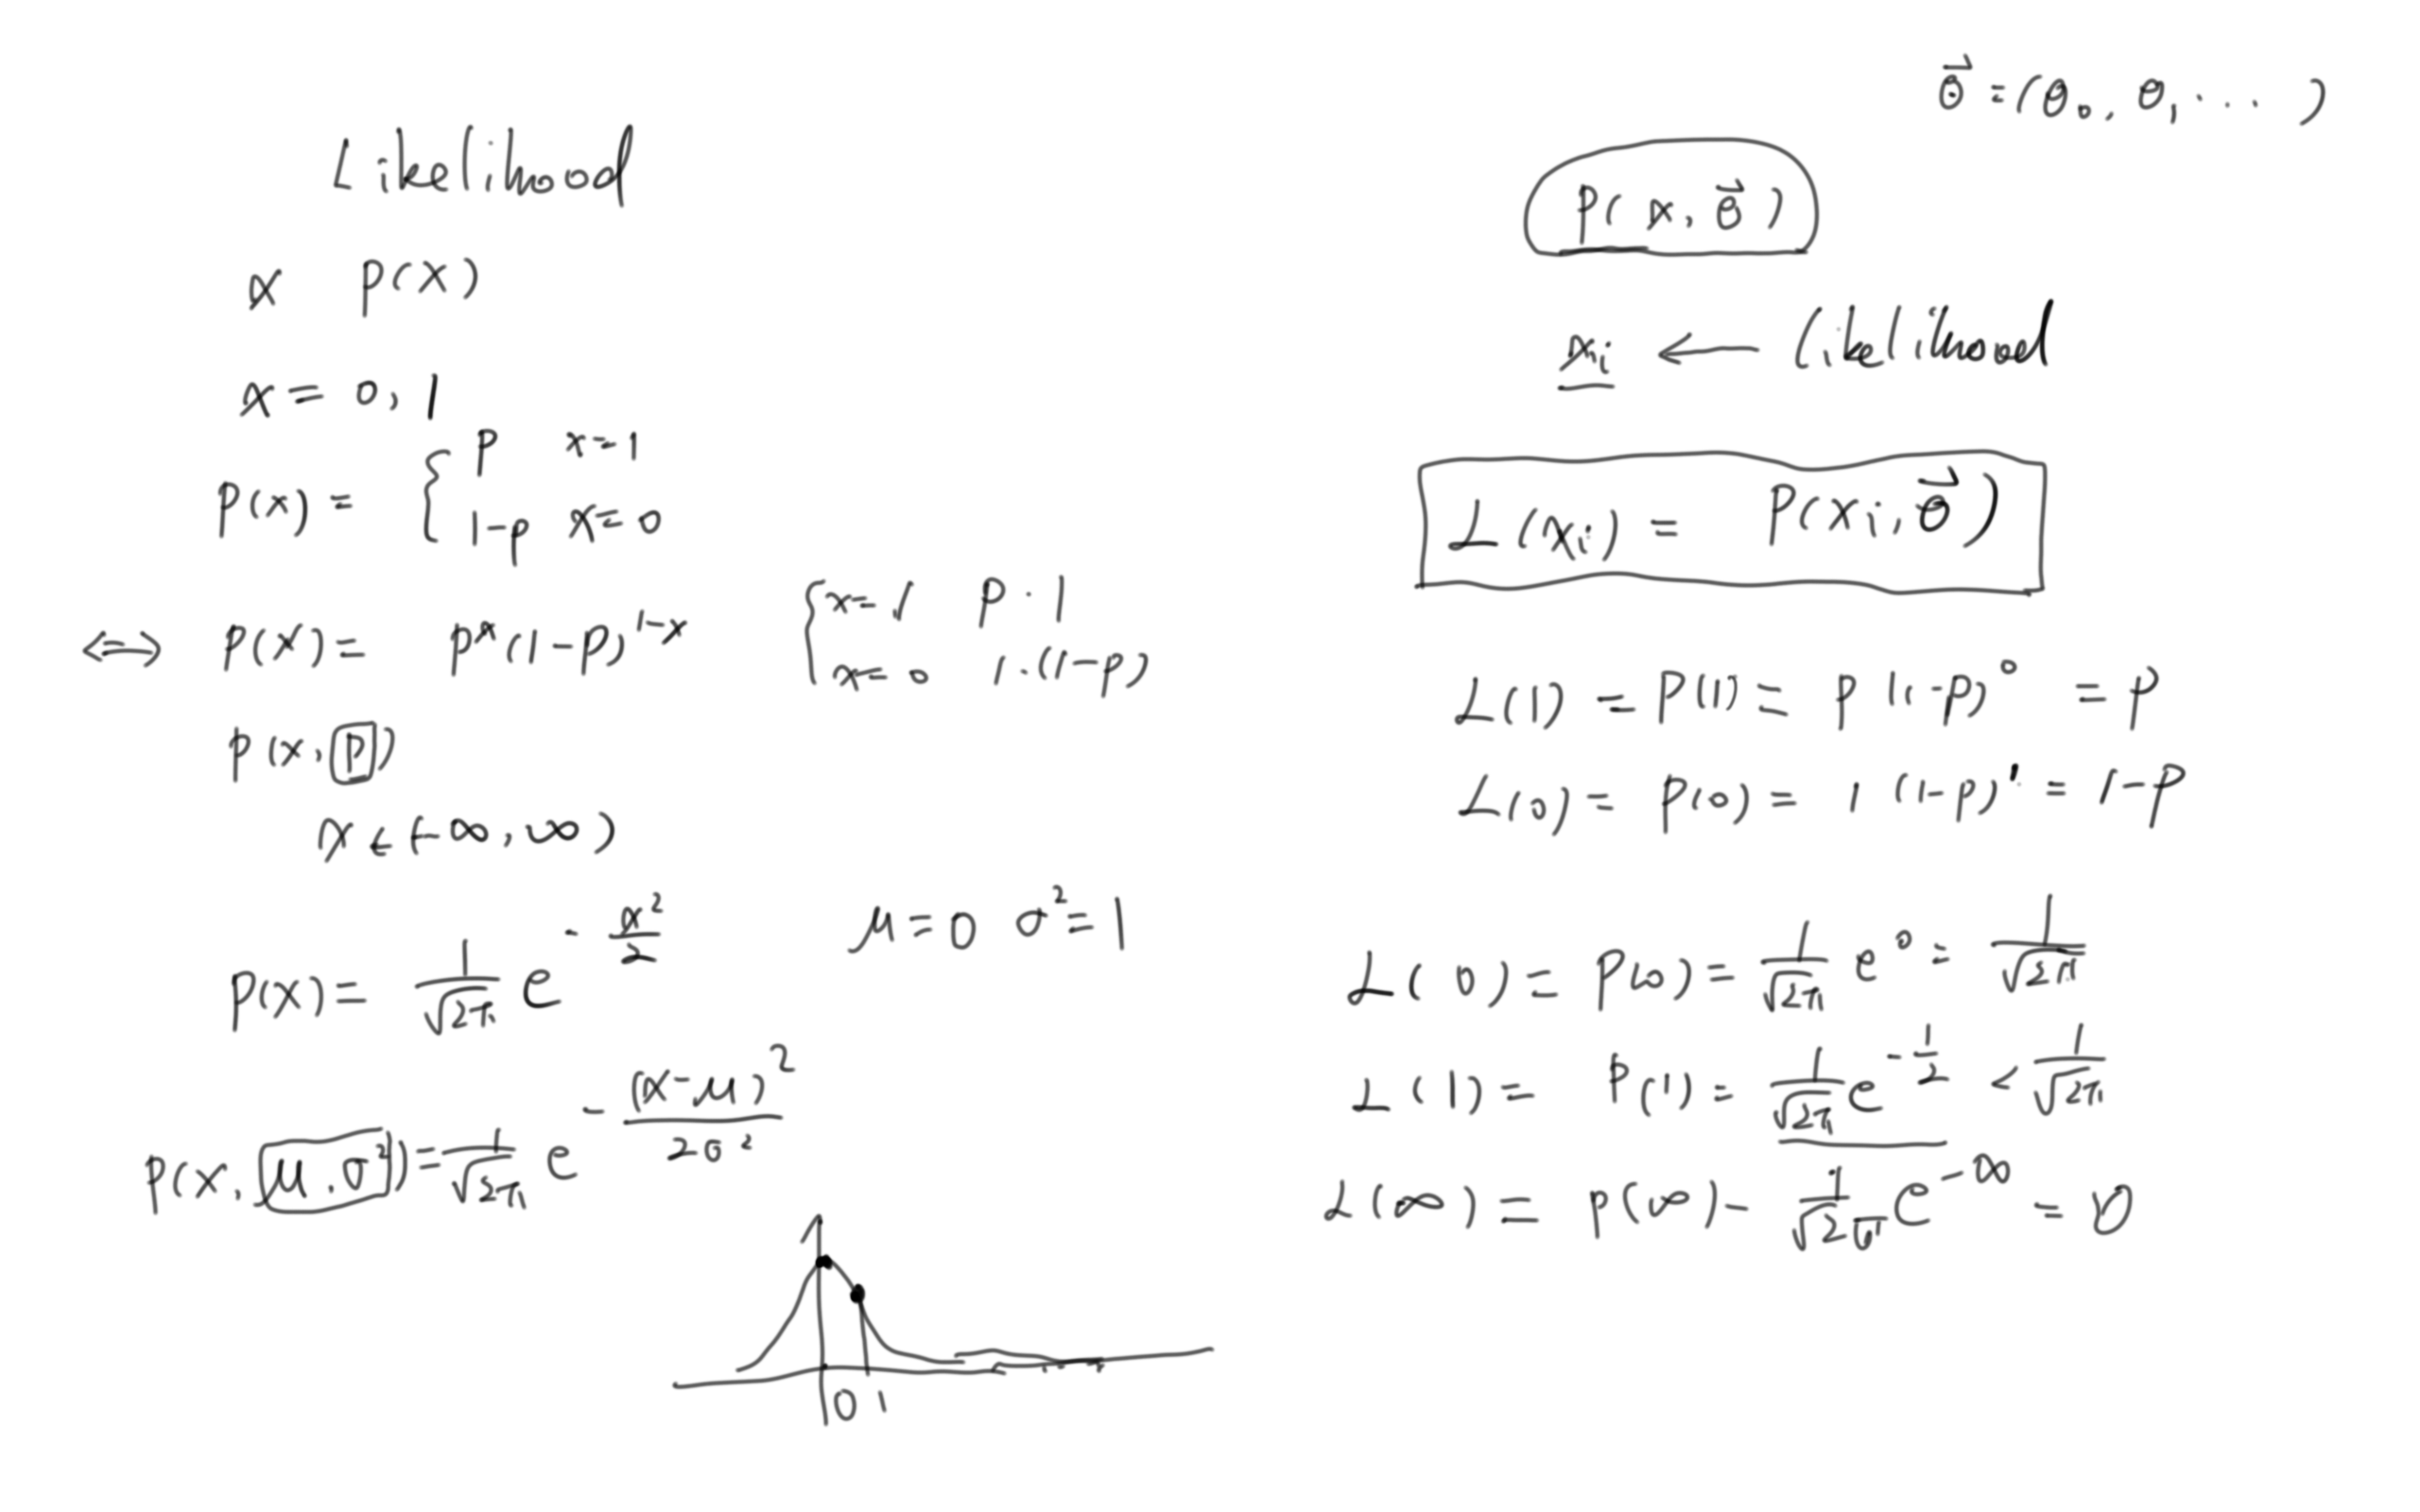 Likelihood
x P(x)
x = 0, 1
P(x) = { p x=1
1-p x=0
⇔ P(x) = p^x (1-p)^{1-x} { x=1 p·1
x=0 1·(1-p)
P(x, p)
x ∈ (-∞, ∞)
P(x) = 1/√2π e^{-x²/2} μ=0 σ²=1
P(x, μ, σ²) = 1/√2π e^{-(x-μ)²/2σ²}
0 1
θ⃗ = (θ₀, θ₁ ... )
P(x, θ⃗)
x_i ← likelihood
L(x_i) = P(x_i, θ⃗)
L(1) = P(1) = p (1-p)^0 = p
L(0) = P(0) = 1 (1-p)^1 = 1-p
L(0) = P(0) = 1/√2π e^0 = 1/√2π
L(1) = P(1) = 1/√2π e^{-1/2} < 1/√2π
L(∞) = P(∞) - 1/√2π e^{-∞} = 0